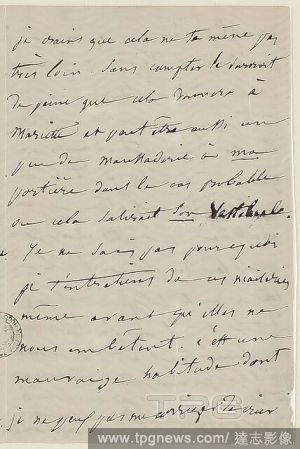 je crains que cela ne te mène pas
très loin. Sans compter le surcroît
de peine que cela donnera à
Mariette et peut être aussi un
peu de maussaderie à ma
portière dans le cas probable
où cela salirait son vestibule.
Je ne sais pas pourquoi
je t'entretiens de ces niaiseries
même avant qu'elles ne
nous embêtent. C'est une
mauvaise habitude dont
je ne peux pas me
TPG
www.tpgnews.com / 達志影像